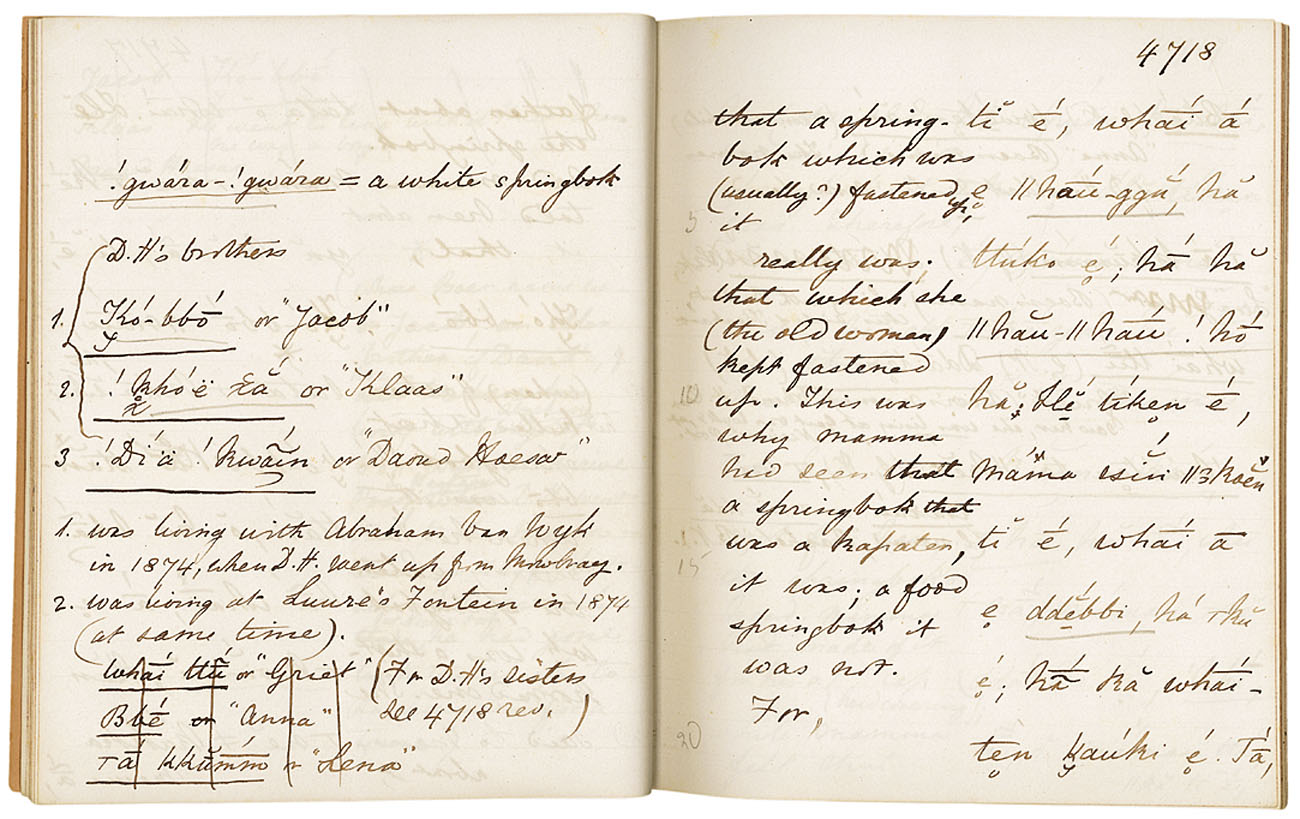 !gwára-!gwára = a white springbok
D.H's brothers
1. Kó-bbó or "Jacob"
2. !khóë or "Klaas"
3 !Dí'ä !kwáin or "Daoud Hoesar"
1. was living with Abraham Van Wyk
in 1874, when D.H. went up from Mowbray.
2. was living at Fontein in 1874
(at same time).
whāí ttú or "Griet" (For D.H's sisters
Bbé or "Anna" see 4718 rev.)
Tá kkŭmm or "Lena"
4718
that a spring- tĭ é, whāí ā́
bok which was
(usually?) fastened up, ẹ ǁhāú-ggŭ, hă
5 it
really was; ttúko ẹ́; hā́ hă
that which she
(the old woman) ǁhău-ǁhāú !hó
kept fastened
10 up. This was hă. tíkẹn é,
why mamma
had seen that máma
a springbok that
15 was a kapater, tĭ é, whāí ā
it was; a food
springbok it ẹ ddĕbbi, há
was not. ẹ́; hā́ kă whāí-
For,
20 tẹn kaúki ẹ́. Tā́,